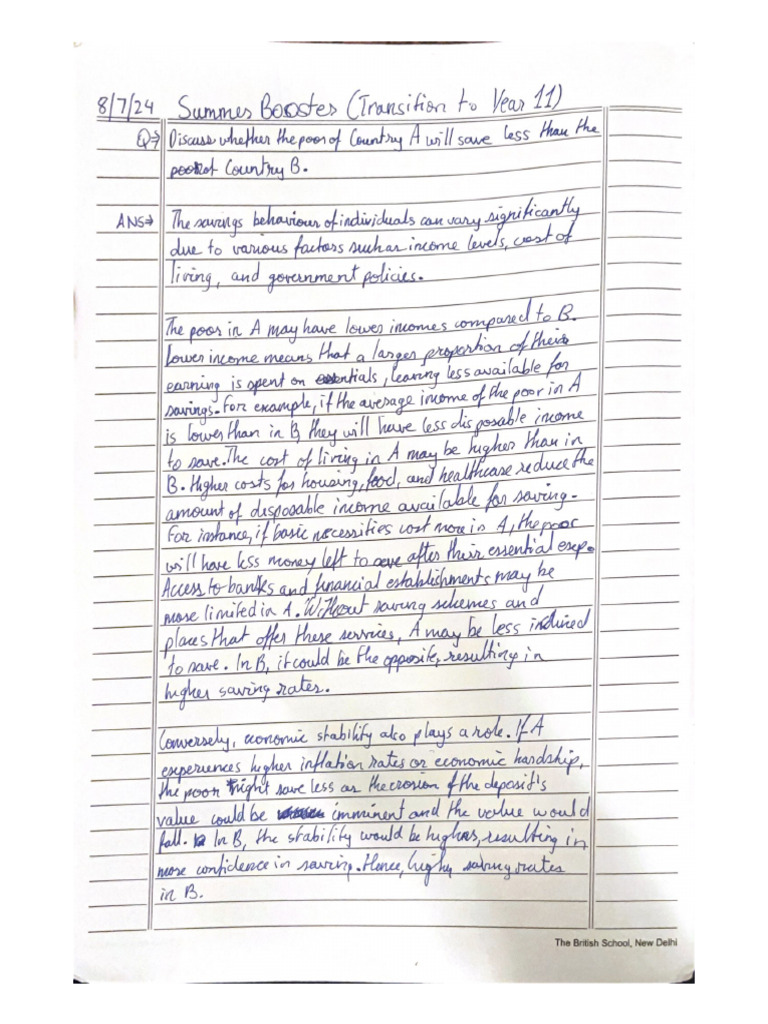 8/7/24 Summer Booster (Transition to Year 11)
Q→ Discuss whether the poor of Country A will save less than the
poor of Country B.
ANS→ The savings behaviour of individuals can vary significantly
due to various factors such as income levels, cost of
living, and government policies.
The poor in A may have lower incomes compared to B.
Lower income means that a larger proportion of their
earning is spent on essentials, leaving less available for
savings. For example, if the average income of the poor in A
is lower than in B, they will have less disposable income
to save. The cost of living in A may be higher than in
B. Higher costs for housing, food, and healthcare reduce the
amount of disposable income available for saving.
For instance, if basic necessities cost more in A, the poor
will have less money left to save after their essential exp.
Access to banks and financial establishments may be
more limited in A. Without saving schemes and
places that offer these services, A may be less inclined
to save. In B, it could be the opposite, resulting in
higher saving rates.
Conversely, economic stability also plays a role. If A
experiences higher inflation rates or economic hardship,
the poor might save less as the erosion of the deposit's
value could be imminent and the value would
fall. In B, the stability would be higher, resulting in
more confidence in saving. Hence, higher saving rates
in B.
The British School, New Delhi